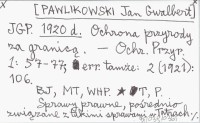 [PAWLIKOWSKI Jan Gwalbert]
JGP. 1920 d. Ochrona przyrody
za granicą. — Ochr. Przyr.
1: 57-77; err. tamże: 2 (1921):
106.
BJ, MT, WHP. T, P.
Sprawy prawne, pośrednio
związane z takimi sprawami w Tatrach.